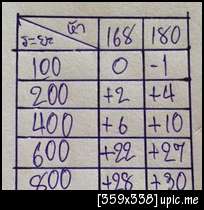 หัว 168 180
ระยะ
100 0 -1
200 +2 +4
400 +6 +10
600 +22 +27
800 +28 +30
[359x338] upic.me